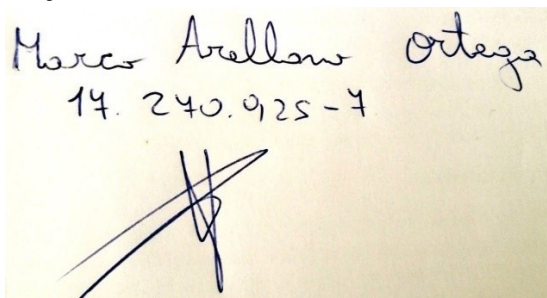 Marco Arellano Ortega
17.270.925-7